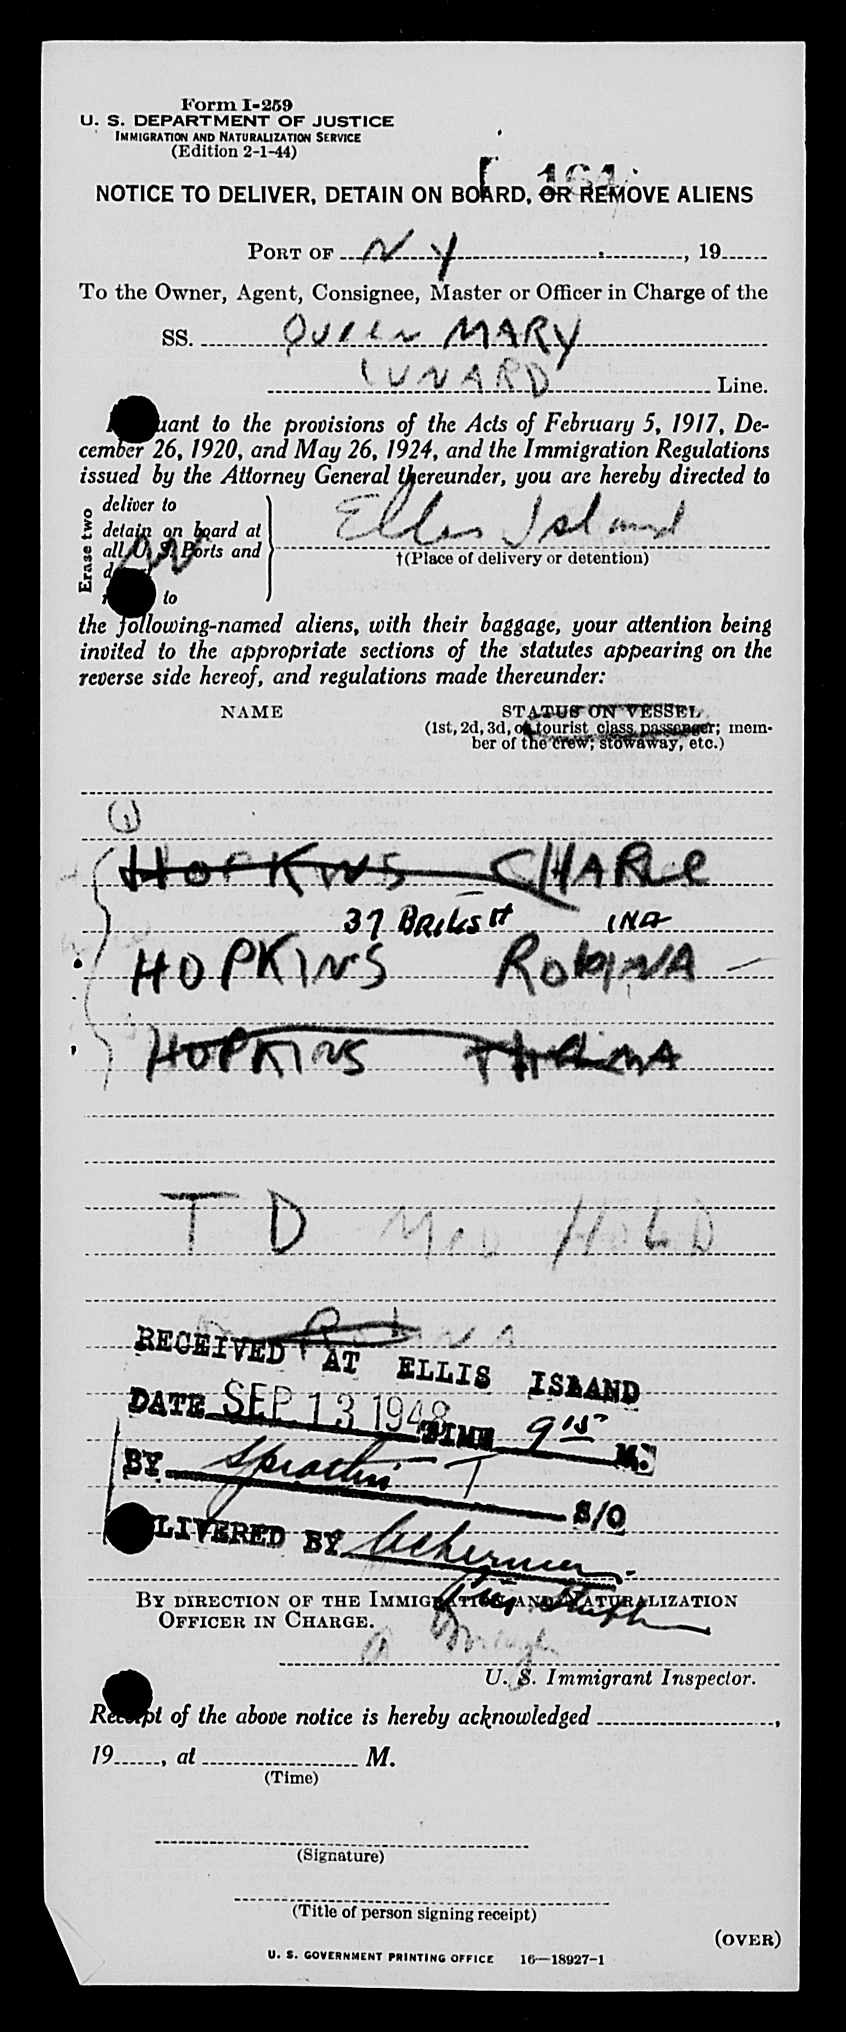 Form I-259
U. S. DEPARTMENT OF JUSTICE
IMMIGRATION AND NATURALIZATION SERVICE
(Edition 2-1-44)
NOTICE TO DELIVER, DETAIN ON BOARD, OR REMOVE ALIENS
PORT OF NY, 19
To the Owner, Agent, Consignee, Master or Officer in Charge of the
SS. QUEEN MARY
CUNARD Line.
uant to the provisions of the Acts of February 5, 1917, De-
cember 26, 1920, and May 26, 1924, and the Immigration Regulations
issued by the Attorney General thereunder, you are hereby directed to
Erase two
deliver to
detain on board at
all U. S. Ports and
to
Ellis Island
†(Place of delivery or detention)
the following-named aliens, with their baggage, your attention being
invited to the appropriate sections of the statutes appearing on the
reverse side hereof, and regulations made thereunder:
NAME STATUS ON VESSEL
(1st, 2d, 3d, or tourist class passenger; mem-
ber of the crew; stowaway, etc.)
(1)
HOPKINS CHARLE
37 INA
HOPKINS ROBINA
HOPKINS THELMA
T D MED HOLD
ROBINA
RECEIVED AT ELLIS ISLAND
DATE SEP 13 1948 TIME 9 15 M.
BY T S/O
LIVERED BY
BY DIRECTION OF THE IMMIGRATION AND NATURALIZATION
OFFICER IN CHARGE.
U. S. Immigrant Inspector.
Receipt of the above notice is hereby acknowledged ,
19 , at M.
(Time)
(Signature)
(Title of person signing receipt)
(OVER)
U. S. GOVERNMENT PRINTING OFFICE 16—18927-1